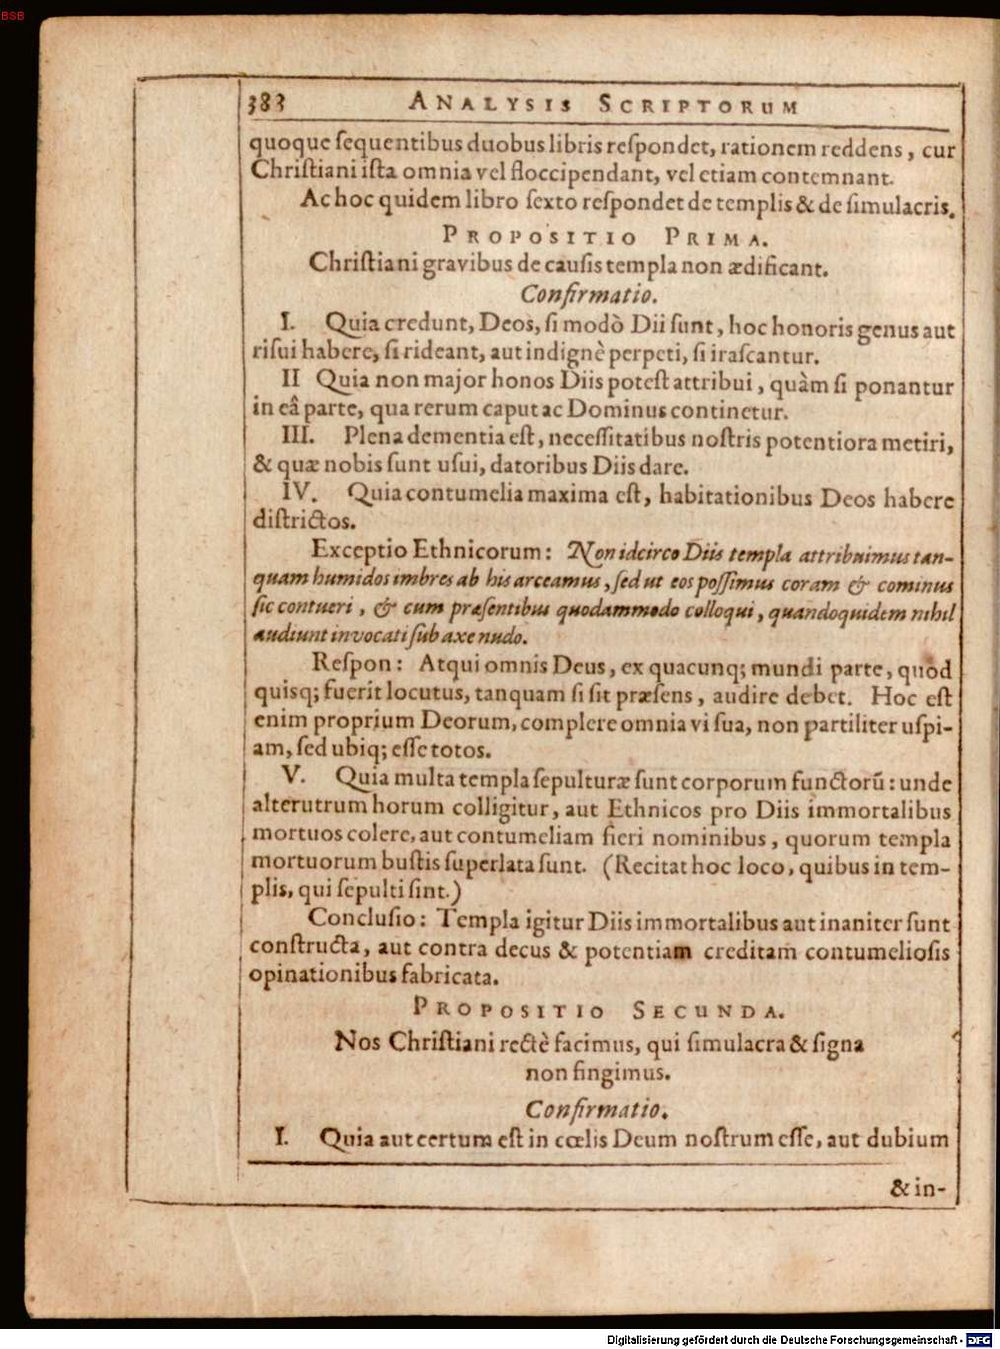 BSB
383 ANALYSIS SCRIPTORUM
quoque sequentibus duobus libris respondet, rationem reddens, cur
Christiani ista omnia vel floccipendant, vel etiam contemnant.
Ac hoc quidem libro sexto respondet de templis & de simulacris.
PROPOSITIO PRIMA.
Christiani gravibus de causis templa non ædificant.
Confirmatio.
I. Quia credunt, Deos, si modò Dii sunt, hoc honoris genus aut
risui habere, si rideant, aut indignè perpeti, si irascantur.
II Quia non major honos Diis potest attribui, quàm si ponantur
in eâ parte, qua rerum caput ac Dominus continetur.
III. Plena dementia est, necessitatibus nostris potentiora metiri,
& quæ nobis sunt usui, datoribus Diis dare.
IV. Quia contumelia maxima est, habitationibus Deos habere
districtos.
Exceptio Ethnicorum: Non idcirco Diis templa attribuimus tan-
quam humidos imbres ab his arceamus, sed ut eos possimus coram & cominus
sic contueri, & cum præsentibus quodammodo colloqui, quandoquidem nihil
audiunt invocati sub axe nudo.
Respon: Atqui omnis Deus, ex quacunq; mundi parte, quòd
quisq; fuerit locutus, tanquam si sit præsens, audire debet. Hoc est
enim proprium Deorum, complere omnia vi sua, non partiliter uspi-
am, sed ubiq; esse totos.
V. Quia multa templa sepulturæ sunt corporum functorũ: unde
alterutrum horum colligitur, aut Ethnicos pro Diis immortalibus
mortuos colere, aut contumeliam fieri nominibus, quorum templa
mortuorum bustis superlata sunt. (Recitat hoc loco, quibus in tem-
plis, qui sepulti sint.)
Conclusio: Templa igitur Diis immortalibus aut inaniter sunt
constructa, aut contra decus & potentiam creditam contumeliosis
opinationibus fabricata.
PROPOSITIO SECUNDA.
Nos Christiani rectè facimus, qui simulacra & signa
non fingimus.
Confirmatio.
I. Quia aut certum est in cœlis Deum nostrum esse, aut dubium
& in-
Digitalisierung gefördert durch die Deutsche Forschungsgemeinschaft - DFG